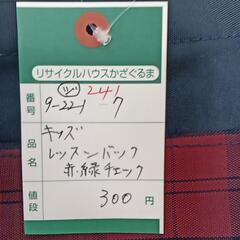 リサイクルハウスかざぐるま
241
番号 9-22-1 ツ -7
品名 キッズ
レッスンバック
赤・緑チェック
値段 300円